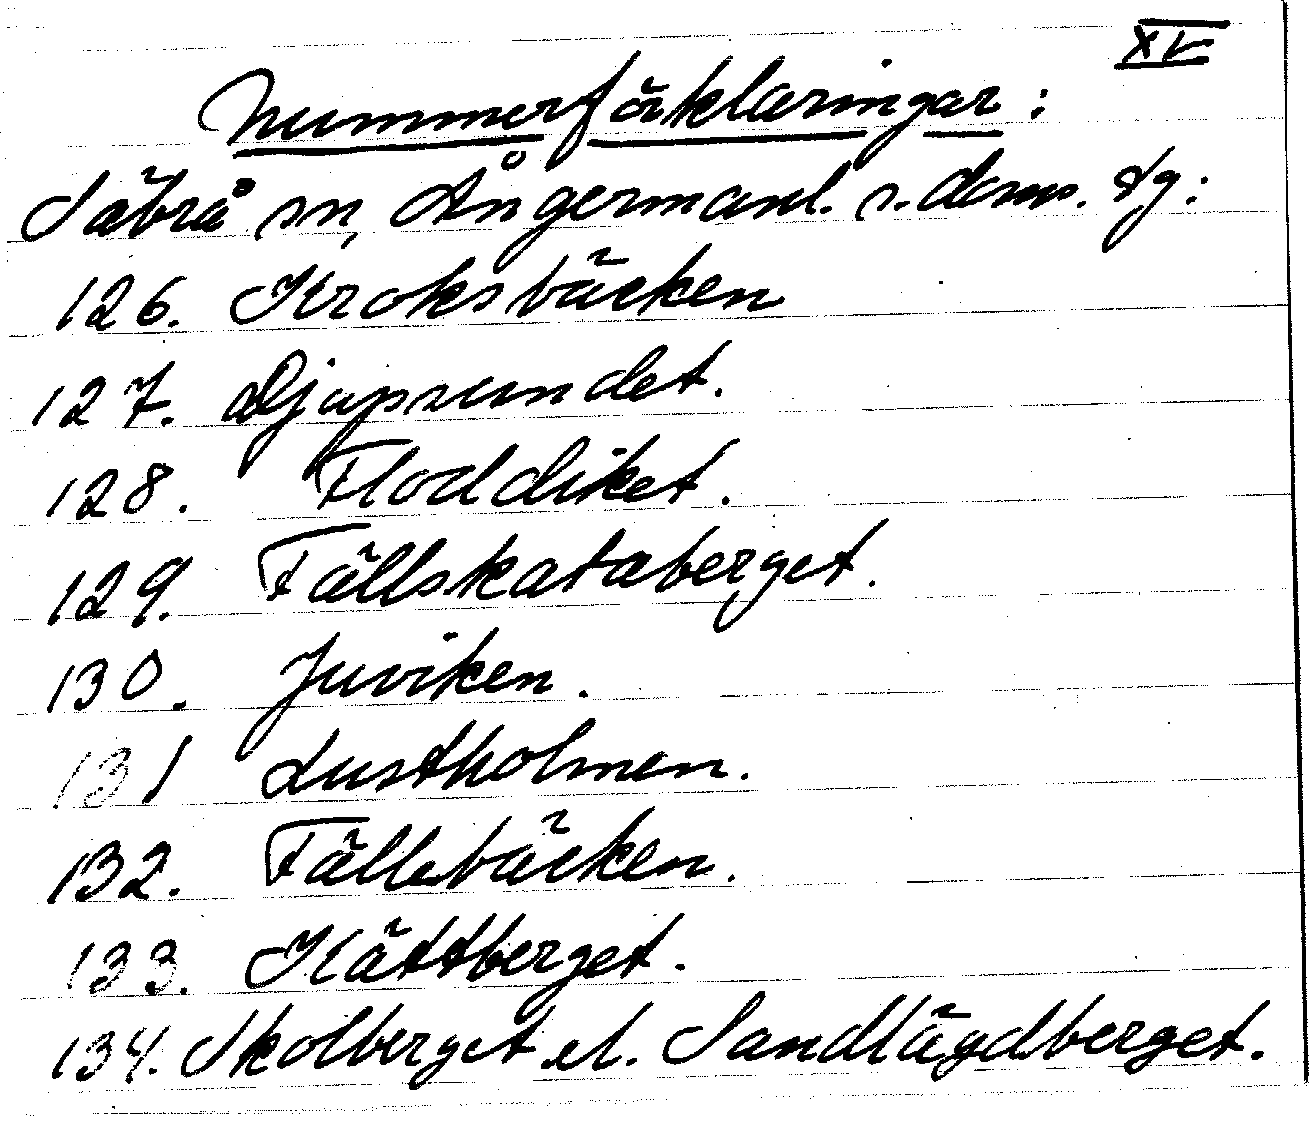 XV
Nummerförklaringar:
Säbrå sn, Ångermanl. s. doms. s/g:
126. Kroksbäcken
127. Djupsundet.
128. Floddiket.
129. Fällskataberget.
130. Juviken.
131 Lustholmen.
132. Fällebäcken.
133. Kättberget.
134. Skolberget el. Sandlägdberget.